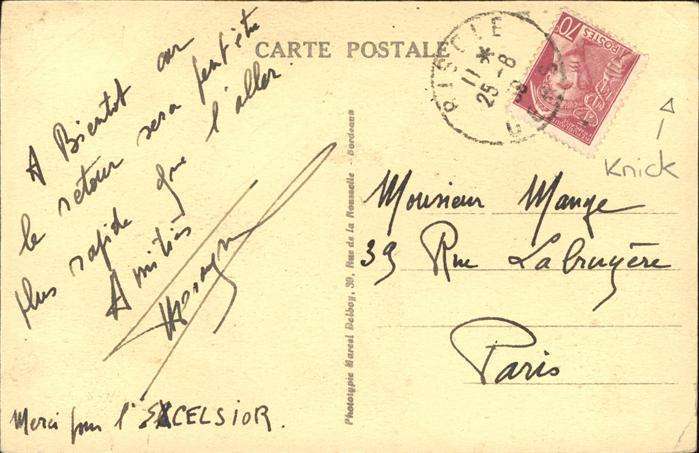 CARTE POSTALE
A Bientôt car
le retour sera peut être
plus rapide que l'aller.
Amitiés
Merci pour l'EXCELSIOR.
Phototypie Marcel Delboy, 39, Rue de la Rousselle - Bordeaux
11 *
25 -8
70
POSTES
Knick
Monsieur Mange
39 Rue Labruyère
Paris